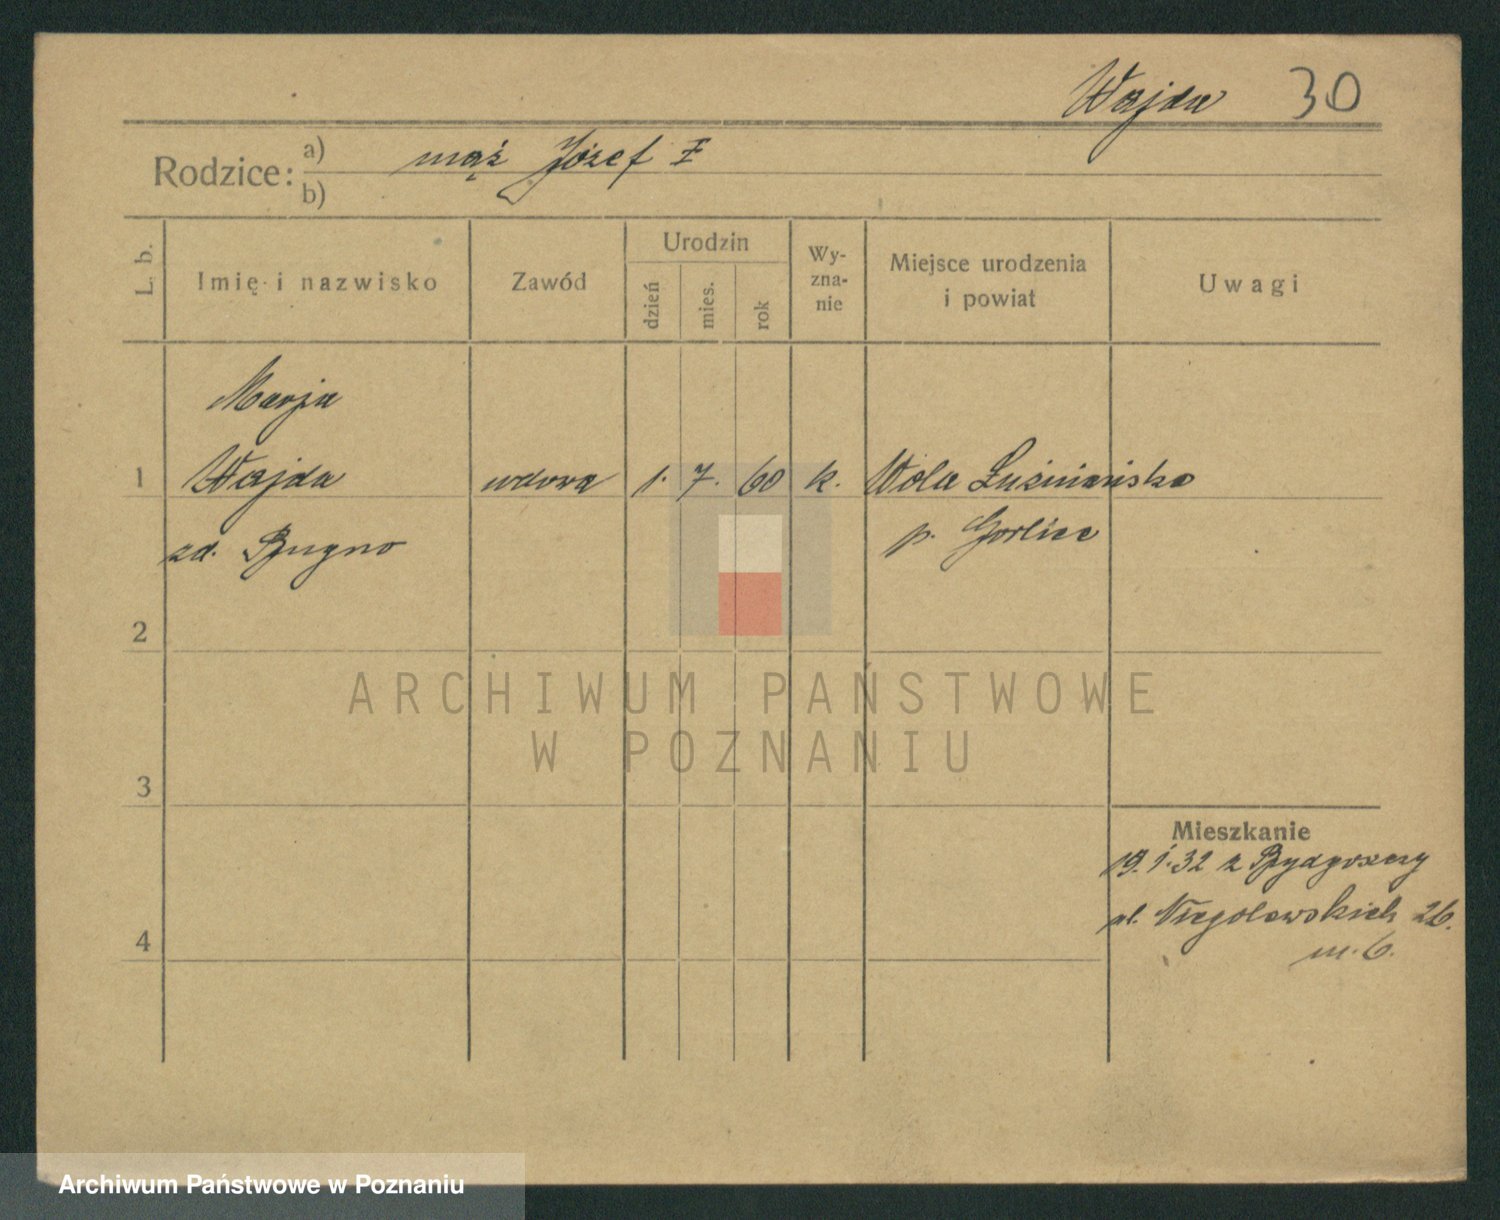 Wajda 30
Rodzice: a) mąż Józef ‡
b)
L. b.
Imię i nazwisko
Zawód
Urodzin
dzień
mies.
rok
Wy-
zna-
nie
Miejsce urodzenia
i powiat
Uwagi
Marja
1 Wajda wdowa 1. 7. 60 k. Wola Łużniańska
zd. Bugno p. Gorlice
2
ARCHIWUM PAŃSTWOWE
W POZNANIU
3
Mieszkanie
19.1.32 z Bydgoszczy
ul. Niegolewskich 26.
4
m. 6.
Archiwum Państwowe w Poznaniu